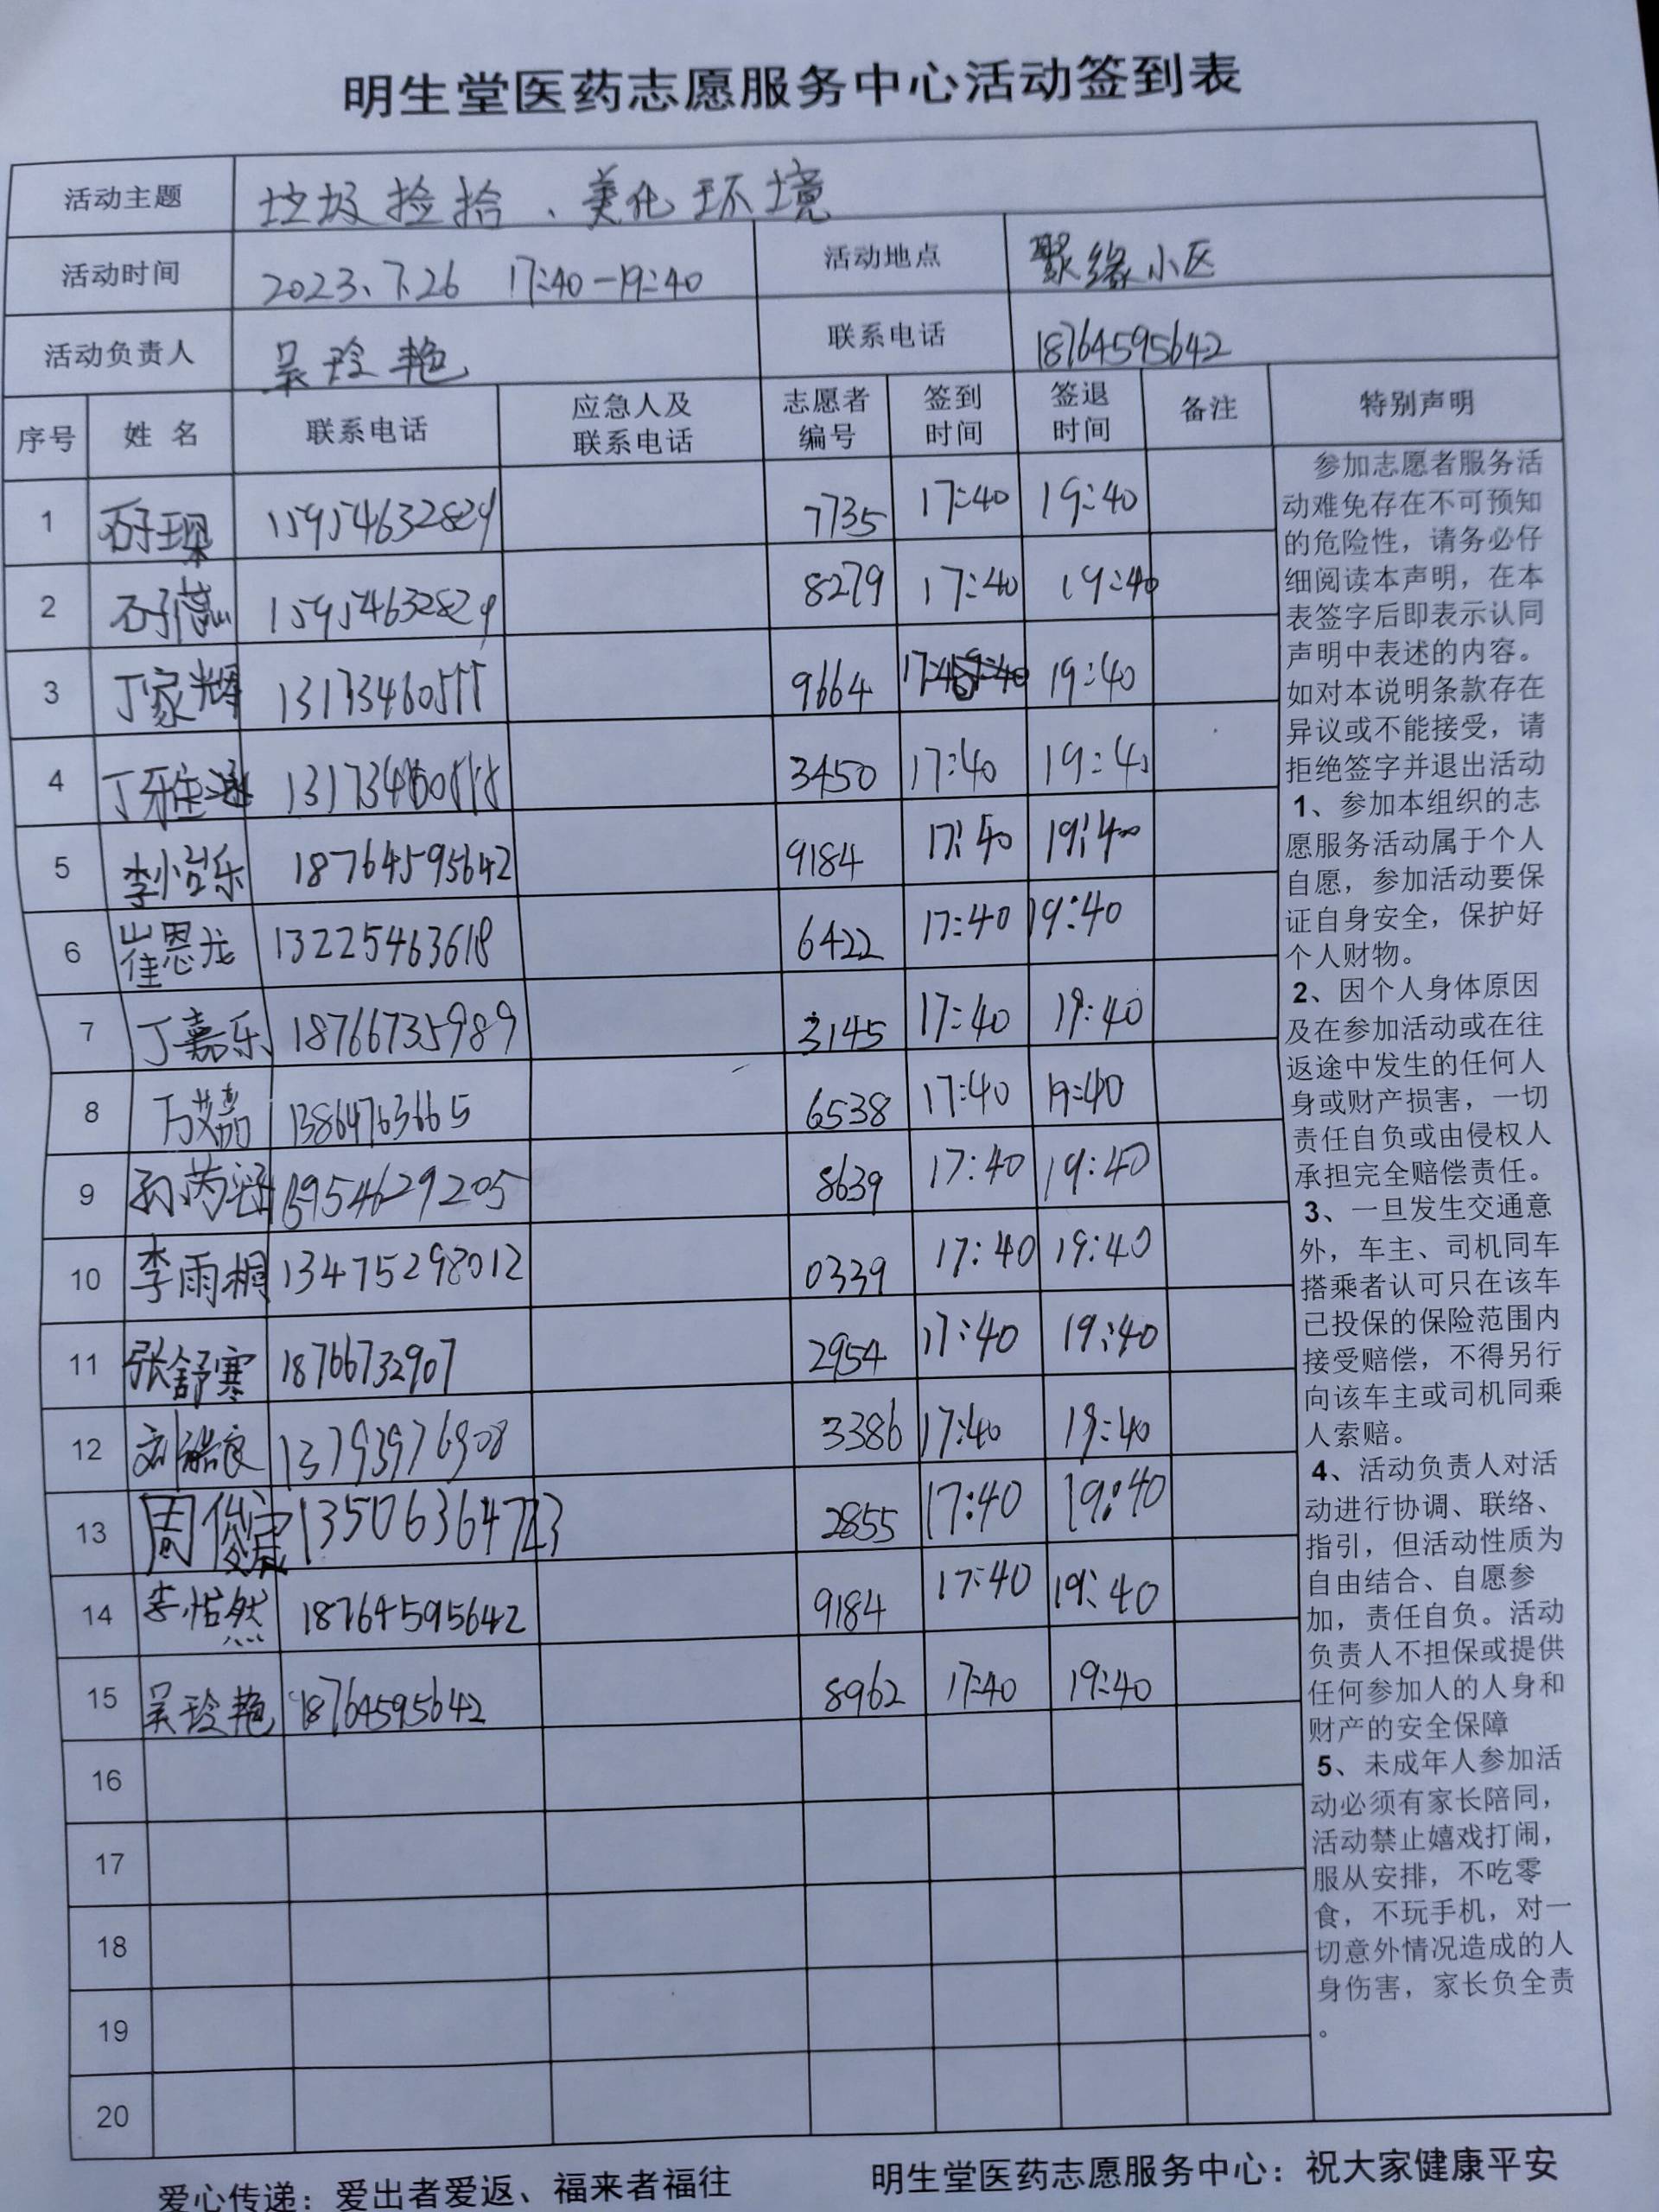 明生堂医药志愿服务中心活动签到表
活动主题 垃圾捡拾、美化环境
活动时间 2023.7.26 17:40-19:40 活动地点 聚缘小区
活动负责人 吴玲艳 联系电话 18764595642
序号 姓名 联系电话 应急人及联系电话 志愿者编号 签到时间 签退时间 备注 特别声明
1 15954632829 7735 17:40 19:40
2 15954632829 8279 17:40 19:40
3 丁家辉 9664 19:40
4 3450 17:40 19:40
5 李怡乐 18764595642 9184 17:40 19:40
6 崔恩龙 13225463618 6422 17:40 19:40
7 丁嘉乐 18766735989 3145 17:40 19:40
8 万艾嘉 6538 17:40 19:40
9 15954629205 8639 17:40 19:40
10 李雨桐 13475298012 0339 17:40 19:40
11 张舒寒 18766732907 2954 17:40 19:40
12 13793976908 3386 17:40 19:40
13 周俊宸 2855 17:40 19:40
14 李怡然 18764595642 9184 17:40 19:40
15 吴玲艳 18764595642 8962 17:40 19:40
16
17
18
19
20
参加志愿者服务活
动难免存在不可预知
的危险性，请务必仔
细阅读本声明，在本
表签字后即表示认同
声明中表述的内容。
如对本说明条款存在
异议或不能接受，请
拒绝签字并退出活动
1、参加本组织的志
愿服务活动属于个人
自愿，参加活动要保
证自身安全，保护好
个人财物。
2、因个人身体原因
及在参加活动或在往
返途中发生的任何人
身或财产损害，一切
责任自负或由侵权人
承担完全赔偿责任。
3、一旦发生交通意
外，车主、司机同车
搭乘者认可只在该车
已投保的保险范围内
接受赔偿，不得另行
向该车主或司机同乘
人索赔。
4、活动负责人对活
动进行协调、联络、
指引，但活动性质为
自由结合、自愿参
加，责任自负。活动
负责人不担保或提供
任何参加人的人身和
财产的安全保障
5、未成年人参加活
动必须有家长陪同，
活动禁止嬉戏打闹，
服从安排，不吃零
食，不玩手机，对一
切意外情况造成的人
身伤害，家长负全责
。
爱心传递：爱出者爱返、福来者福往 明生堂医药志愿服务中心：祝大家健康平安